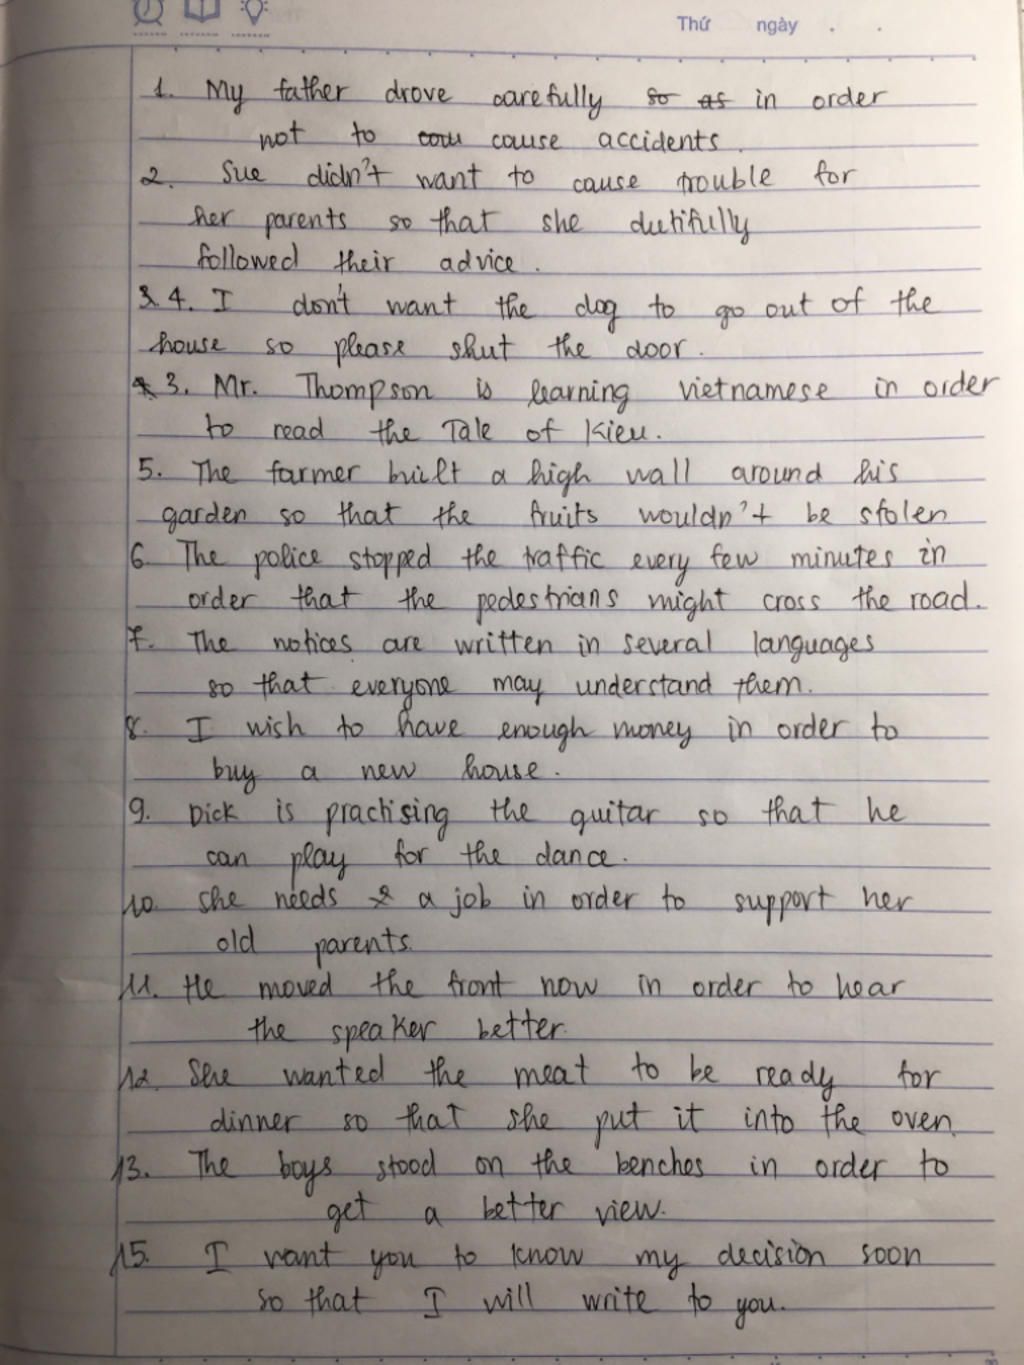 Thứ ngày . .
1. My father drove carefully so as in order
not to cau cause accidents.
2. Sue didn't want to cause trouble for
her parents so that she dutifully
followed their advice.
3. 4. I don't want the dog to go out of the
house so please shut the door.
4 3. Mr. Thompson is learning vietnamese in order
to read the Tale of Kieu.
5. The farmer built a high wall around his
garden so that the fruits wouldn't be stolen
6. The police stopped the traffic every few minutes in
order that the pedestrians might cross the road.
7. The notices are written in several languages
so that everyone may understand them.
8. I wish to have enough money in order to
buy a new house.
9. Dick is practising the guitar so that he
can play for the dance.
10. She needs a job in order to support her
old parents.
11. He moved the front now in order to hear
the speaker better.
12. She wanted the meat to be ready for
dinner so that she put it into the oven.
13. The boys stood on the benches in order to
get a better view.
15. I want you to know my decision soon
so that I will write to you.